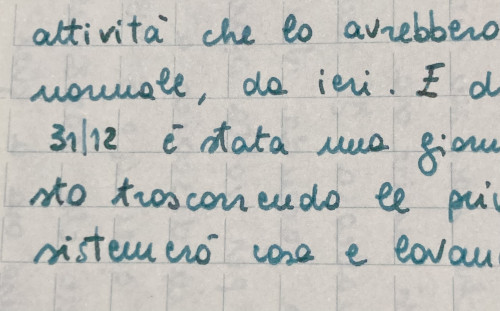 attività che lo avrebbero
normale, da ieri. E d
31/12 è stata una gior
sto trascorrendo le pri
sistemerò casa e lavan